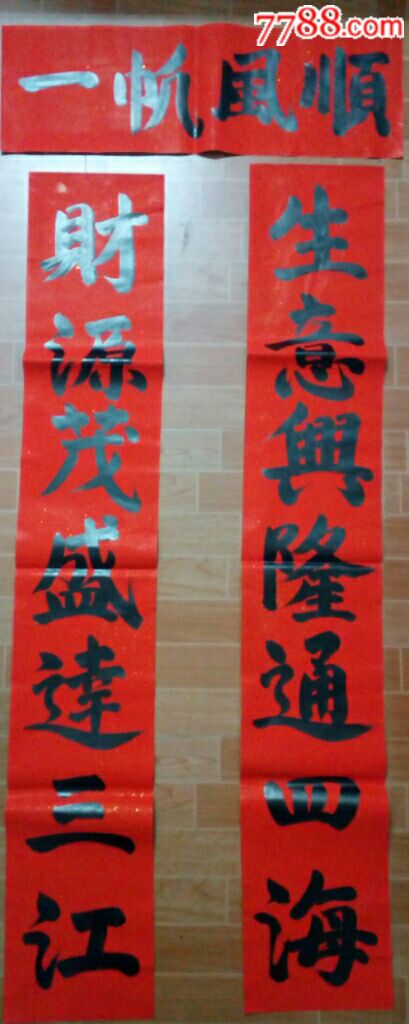 7788.com
一帆風順
生意興隆通四海
財源茂盛達三江